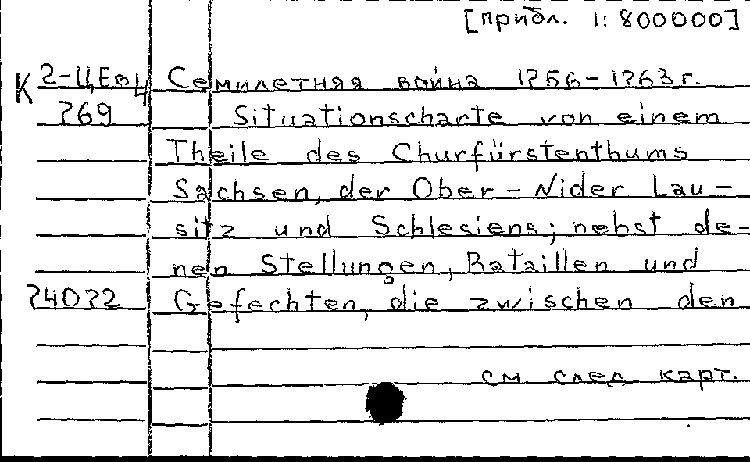 [прибл. 1:800000]
К 2-ЦЕв 4 Семилетняя война 1756-1763 г.
769 Situationscharte von einem
Theile des Churfürstenthums
Sachsen, der Ober-Nider Lau-
sitz und Schlesiens; nebst de-
nen Stellungen, Bataillen und
24022 Gefechten, die zwischen den
см. след. карт.